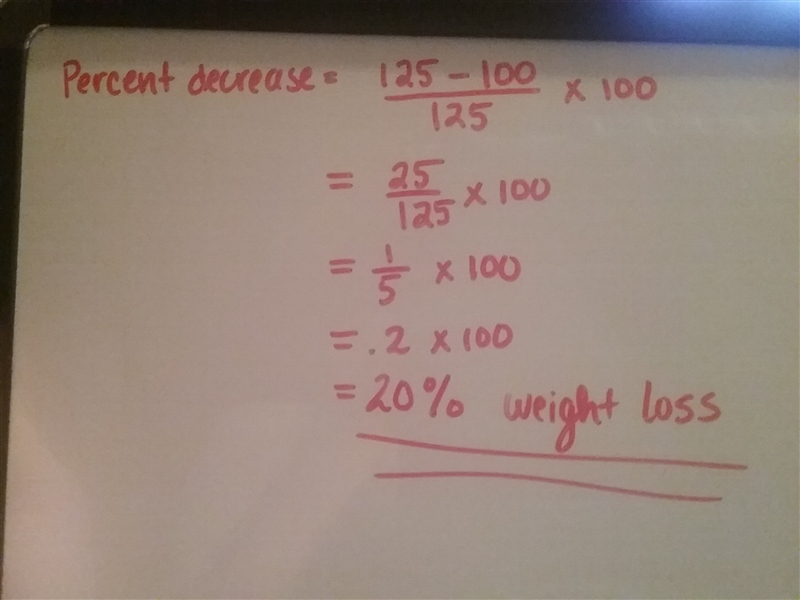 Percent decrease = 125 - 100 / 125 x 100
= 25 / 125 x 100
= 1 / 5 x 100
= .2 x 100
= 20% weight loss